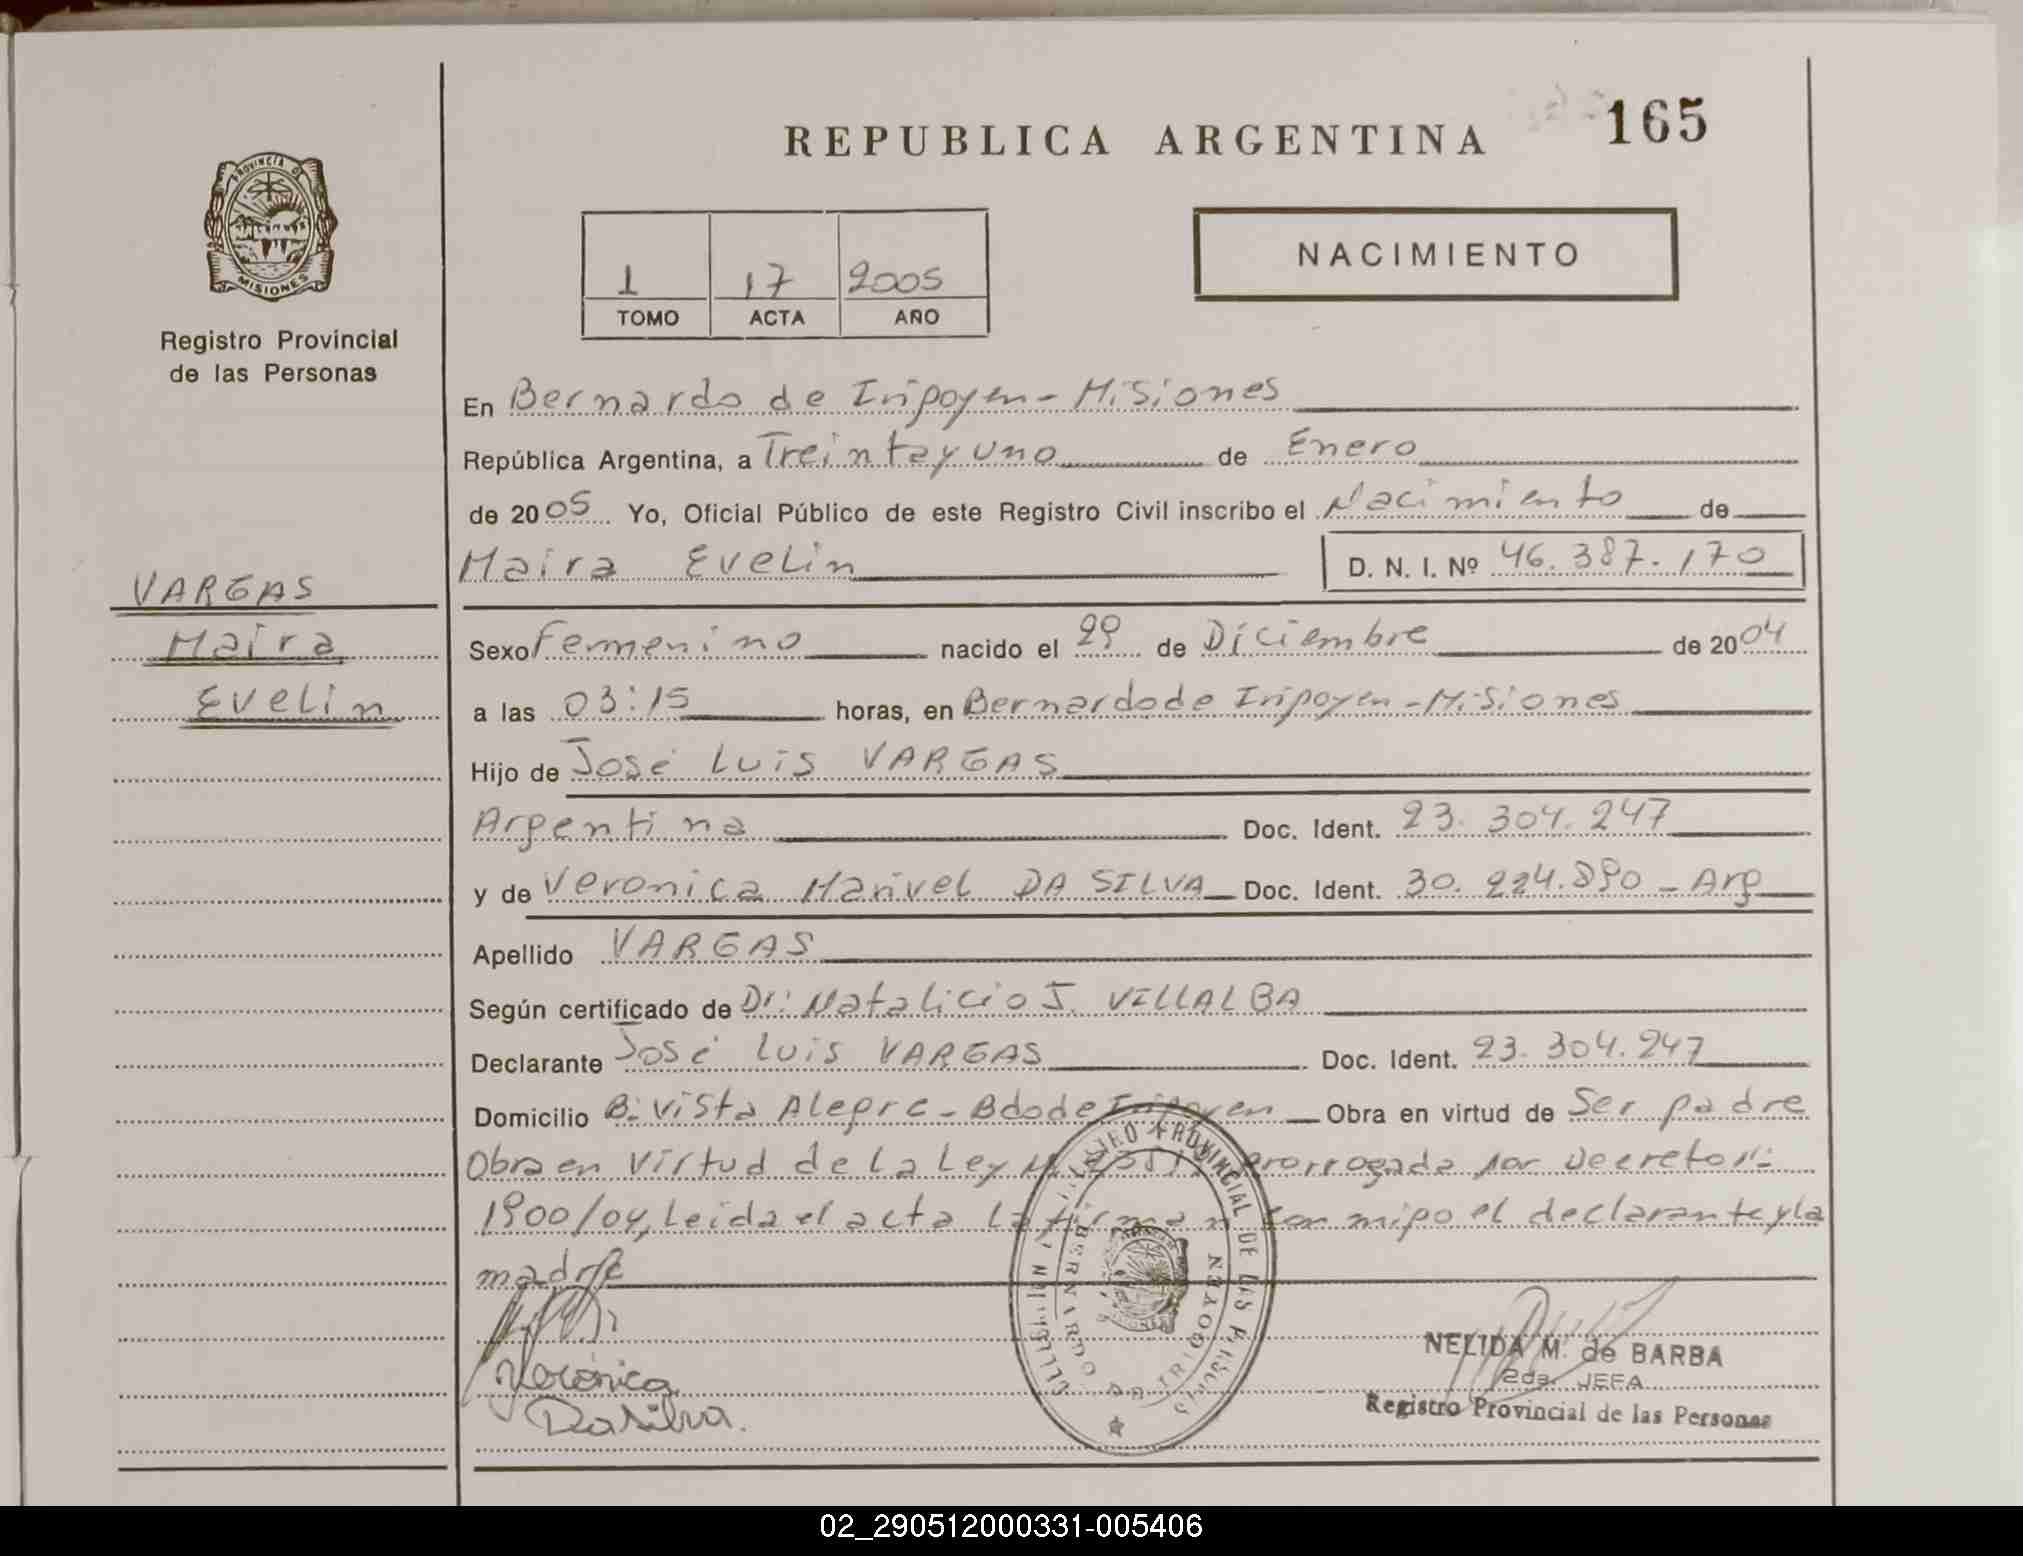 REPUBLICA ARGENTINA
165
PROVINCIA DE
MISIONES
Registro Provincial
de las Personas
1 17 2005
TOMO ACTA AÑO
NACIMIENTO
En Bernardo de Irigoyen - Misiones
República Argentina, a Treinta y uno de Enero
de 2005 Yo, Oficial Público de este Registro Civil inscribo el Nacimiento de
Maira Evelin D. N. I. Nº 46.387.170
VARGAS
Maira
Evelin
Sexo Femenino nacido el 29 de Diciembre de 2004
a las 03:15 horas, en Bernardo de Irigoyen - Misiones
Hijo de José Luis VARGAS
Argentina Doc. Ident. 23.304.247
y de Veronica Marivel DA SILVA Doc. Ident. 30.224.890 - Arg
Apellido VARGAS
Según certificado de Dr: Natalicio J. VILLALBA
Declarante José Luis VARGAS Doc. Ident. 23.304.247
Domicilio B: Vista Alegre - Bdo de Irigoyen Obra en virtud de Ser padre
Obra en Virtud de La Ley prorrogada por Decreto Nº:
1900/04, Leida el acta La firman con migo el declarante y la
madre
Verónica
Da Silva.
REGISTRO PROVINCIAL DE LAS PERSONAS
BERNARDO DE IRIGOYEN
NELIDA M. de BARBA
2da. JEFA
Registro Provincial de las Personas
02_290512000331-005406